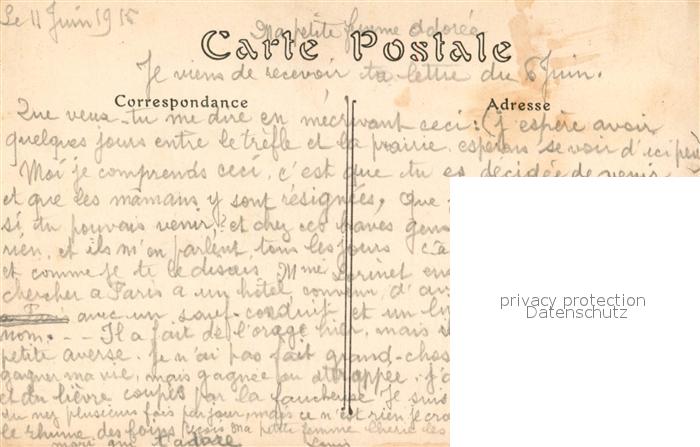 Le 11 Juin 1915
Ma petite femme adorée
Carte Postale
Je viens de recevoir ta lettre du 8 Juin.
Correspondance
Adresse
Que veux-tu me dire en m'écrivant ceci: (j'espère avoir
quelques jours entre le trèfle et la prairie. espérons se voir d'ici peu
Moi je comprends ceci, c'est que tu es décidée de venir
et que les mamans y sont résignées. Que
si tu pouvais venir, et chez ces braves gens
rien, et ils m'en parlent tous les jours
et comme je te le disais, Mme
chercher à Paris a un hôtel convenu, d'
avec un sauf-conduit et un
nom. - - Il a fait de l'orage hier, mais
petite averse. Je n'ai pas fait grand-chose
gagner ma vie, mais gagnée ou attrappée. j'
et du lièvre coupés par la faucheuse. Je suis
du nez plusieurs fois par jour, mais ce n'est rien je
le rhume des foins reçois ma petite femme chérie les
t'adore Louis
privacy protection
Datenschutz